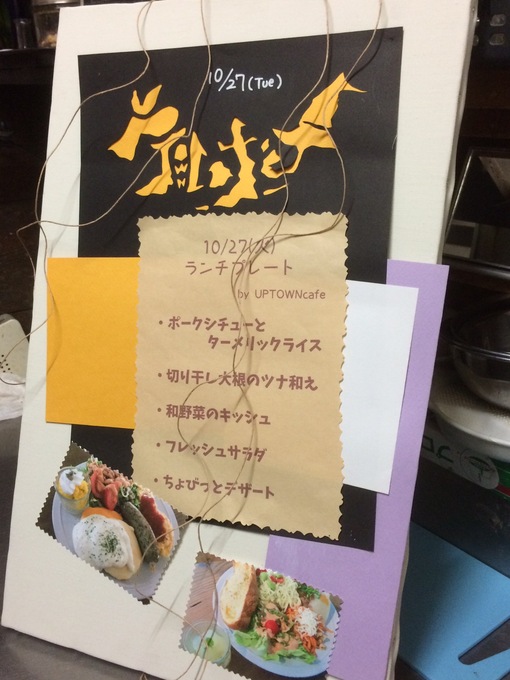 10/27(Tue)
10/27(火)
ランチプレート
by UPTOWNcafe
・ポークシチューと
ターメリックライス
・切り干し大根のツナ和え
・和野菜のキッシュ
・フレッシュサラダ
・ちょびっとデザート